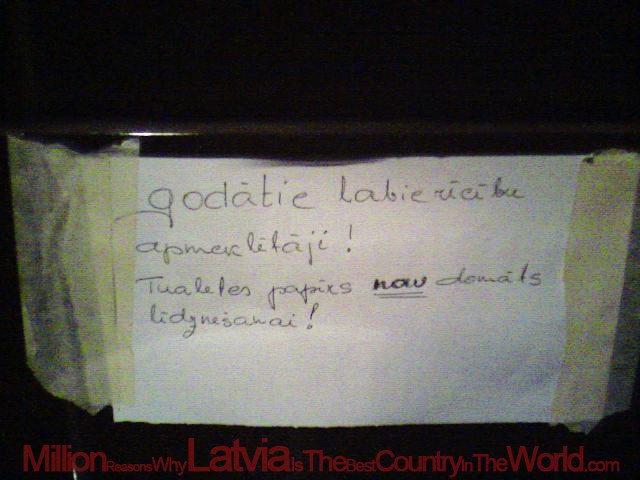 godātie labierīcību
apmeklētāji!
Tualetes papīrs nav domāts
līdznešanai!
Million Reasons Why Latvia Is The Best Country In The World.com